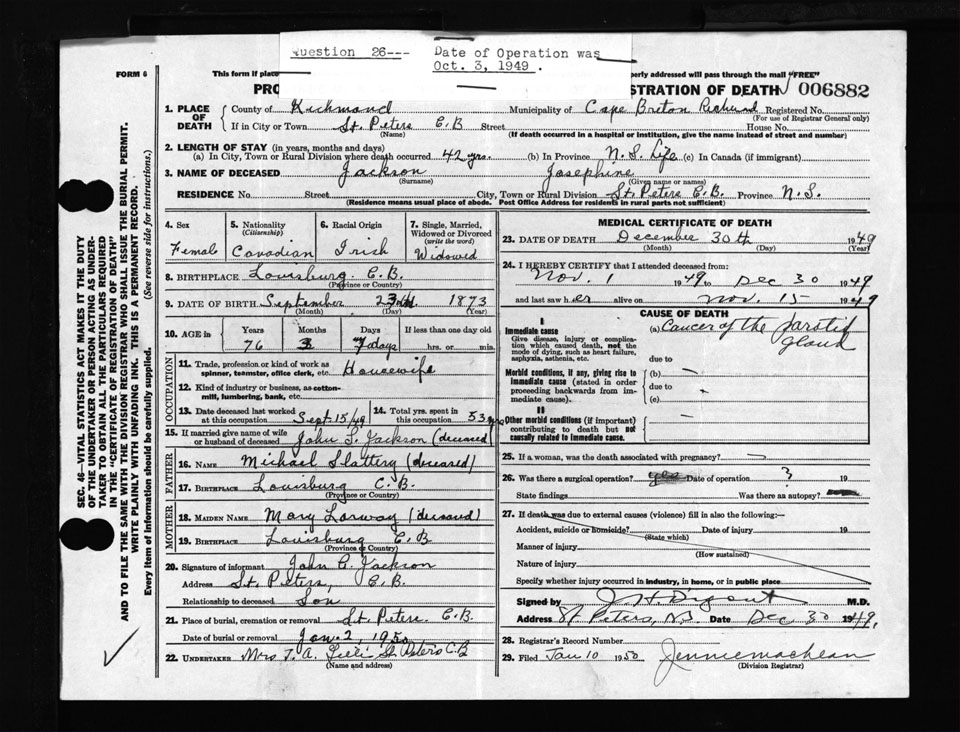 Question 26--- Date of Operation was
Oct. 3, 1949.
FORM 6
This form if place
perly addressed will pass through the mail "FREE"
PRO
ISTRATION OF DEATH 006882
1. PLACE OF DEATH
County of Richmond Municipality of Cape Breton Richmond Registered No.
(For use of Registrar General only)
If in City or Town St. Peters C.B Street House No.
(Name) (If death occurred in a hospital or institution, give the name instead of street and number)
2. LENGTH OF STAY (in years, months and days)
(a) In City, Town or Rural Division where death occurred 42 yrs. (b) In Province N.S. Life (c) In Canada (if immigrant)
3. NAME OF DECEASED Jackson Josephine
(Surname) (Given name or names)
RESIDENCE No. Street City, Town or Rural Division St Peters C.B. Province N.S.
(Residence means usual place of abode. Post Office Address for residents in rural parts not sufficient)
4. Sex Female
5. Nationality (Citizenship) Canadian
6. Racial Origin Irish
7. Single, Married, Widowed or Divorced (write the word) Widowed
8. BIRTHPLACE Louisburg C.B.
(Province or Country)
9. DATE OF BIRTH September 23rd 1873
(Month) (Day) (Year)
10. AGE in Years Months Days If less than one day old
76 3 7 days hrs. or min.
OCCUPATION
11. Trade, profession or kind of work as spinner, teamster, office clerk, etc. Housewife
12. Kind of industry or business, as cotton-mill, lumbering, bank, etc.
13. Date deceased last worked at this occupation Sept 15/49
14. Total yrs. spent in this occupation 53 yrs
15. If married give name of wife or husband of deceased John S. Jackson (deceased)
FATHER
16. NAME Michael Slattery (deceased)
17. BIRTHPLACE Louisburg C.B.
(Province or Country)
MOTHER
18. MAIDEN NAME Mary Lorway (deceased)
19. BIRTHPLACE Louisburg C.B
(Province or Country)
20. Signature of informant John C. Jackson
Address St. Peters, C.B.
Relationship to deceased Son
21. Place of burial, cremation or removal St. Peters C.B.
Date of burial or removal Jan. 2, 1950
22. UNDERTAKER Mrs T. A. St. Peters C.B
(Name and address)
MEDICAL CERTIFICATE OF DEATH
23. DATE OF DEATH December 30th 1949
(Month) (Day) (Year)
24. I HEREBY CERTIFY that I attended deceased from:
Nov. 1 1949 to Dec 30 1949
and last saw her alive on Nov. 15 1949
CAUSE OF DEATH
I
Immediate cause (a) Cancer of the parotid gland
Give disease, injury or complication which caused death, not the mode of dying, such as heart failure, asphyxia, asthenia, etc.
due to
Morbid conditions, if any, giving rise to immediate cause (stated in order proceeding backwards from immediate cause).
(b) –
due to
(c)
II
Other morbid conditions (if important) contributing to death but not causally related to immediate cause.
25. If a woman, was the death associated with pregnancy?
26. Was there a surgical operation? yes Date of operation ? 19
State findings Was there an autopsy?
27. If death was due to external causes (violence) fill in also the following:—
Accident, suicide or homicide? Date of injury 19
(State which)
Manner of injury
(How sustained)
Nature of injury
Specify whether injury occurred in industry, in home, or in public place
Signed by M.D.
Address St. Peters, N.S Date Dec 30 1949.
28. Registrar's Record Number
29. Filed Jan 10 1950 Jennie MacLean
(Division Registrar)
SEC. 46—VITAL STATISTICS ACT MAKES IT THE DUTY
OF THE UNDERTAKER OR PERSON ACTING AS UNDER-
TAKER TO OBTAIN ALL THE PARTICULARS REQUIRED
IN THE "CERTIFICATE OF REGISTRATION OF DEATH"
AND TO FILE THE SAME WITH THE DIVISION REGISTRAR WHO SHALL ISSUE THE BURIAL PERMIT.
WRITE PLAINLY WITH UNFADING INK. THIS IS A PERMANENT RECORD.
Every item of Information should be carefully supplied. (See reverse side for instructions.)